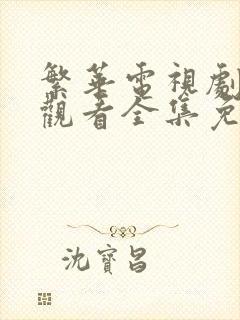 繁華電視劇
觀看全集免
沈寶昌